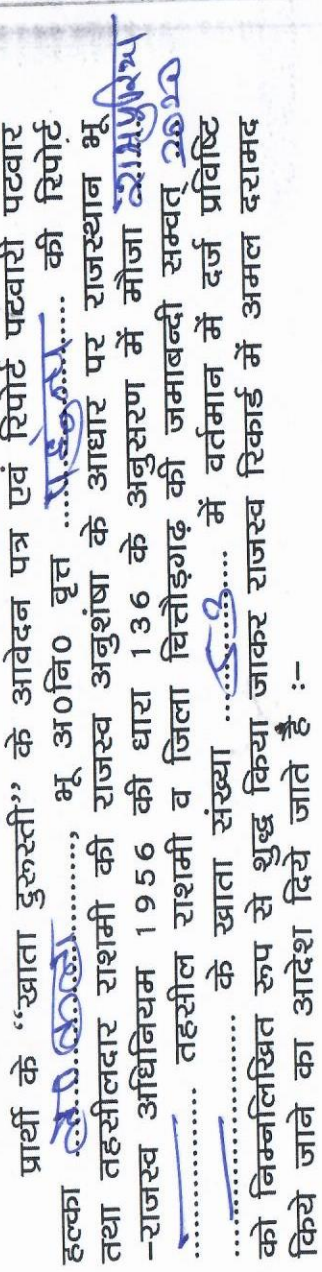 प्रार्थी के “खाता दुरूस्ती” के आवेदन पत्र एवं रिपोर्ट पटवारी पटवार
हल्का ...................., भू अ०नि० वृत्त ...पहुंना... की रिपोर्ट
तथा तहसीलदार राशमी की राजस्व अनुशंषा के आधार पर राजस्थान भू
-राजस्व अधिनियम 1956 की धारा 136 के अनुसरण में मौजा
.................. तहसील राशमी व जिला चित्तौड़गढ़ की जमाबन्दी सम्वत्
.................. के खाता संख्या .................. में वर्तमान में दर्ज प्रविष्टि
को निम्नलिखित रूप से शुद्ध किया जाकर राजस्व रिकार्ड में अमल दरामद
किये जाने का आदेश दिये जाते हैं :-